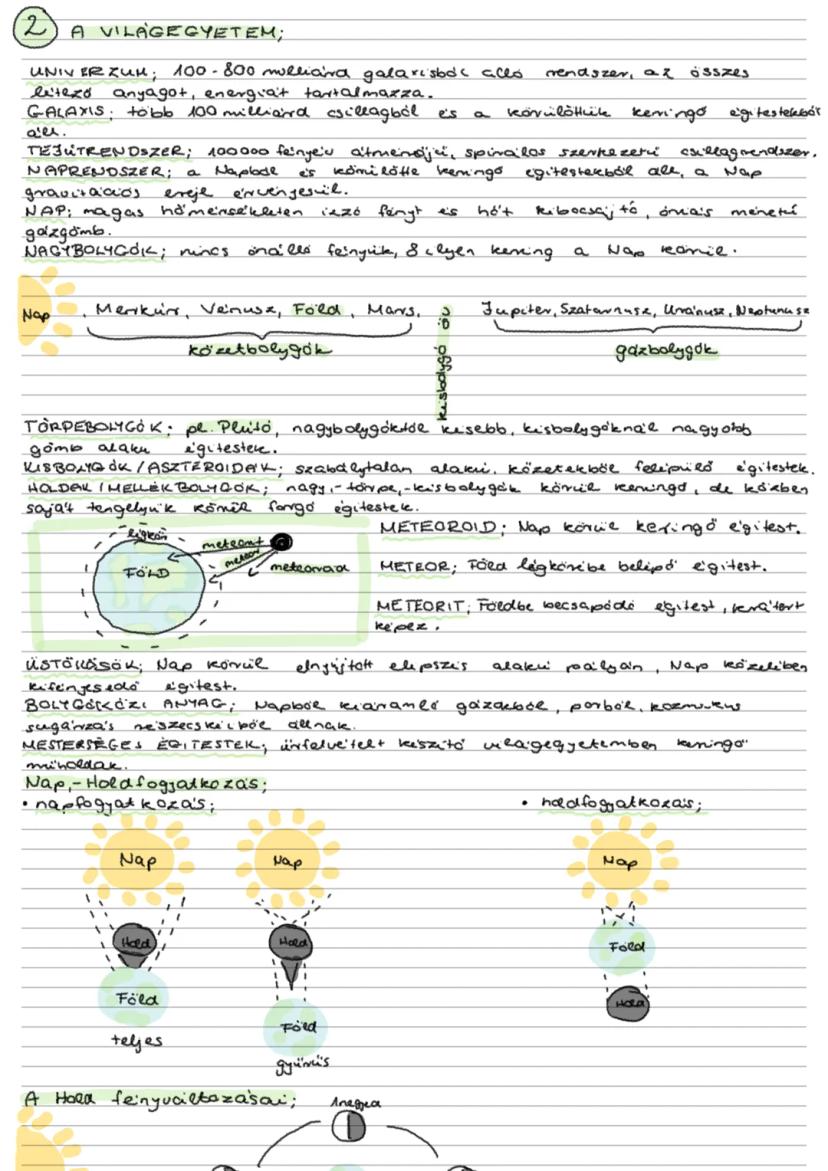 2 A VILÁGEGYETEM;
UNIVERZUM; 100-800 milliárd galaxisból álló rendszer, az összes
létező anyagot, energiát tartalmazza.
GALAXIS; több 100 milliárd csillagból és a körülöttük keringő égitestekből
áll.
TEJÚTRENDSZER; 100000 fényév átmérőjű, spirálos szerkezetű csillagrendszer.
NAPRENDSZER; a Napból és körülötte keringő égitestekből áll, a Nap
gravitációs ereje érvényesül.
NAP; magas hőmérsékleten izzó fényt és hőt kibocsájtó, óriás méretű
gázgömb.
NAGYBOLYGÓK; nincs önálló fényük, 8 ilyen kering a Nap körül.
Nap, Merkúr, Vénusz, Föld, Mars, kisbolygó öv Jupiter, Szaturnusz, Uránusz, Neptunusz
kőzetbolygók gázbolygók
TÖRPEBOLYGÓK: pl. Plútó, nagybolygóktól kisebb, kisbolygóknál nagyobb
gömb alakú égitestek.
KISBOLYGÓK/ASZTEROIDÁK; szabálytalan alakú, kőzetekből felépülő égitestek.
HOLDAK/MELLÉKBOLYGÓK; nagy,-törpe,-kisbolygók körül keringő, de közben
saját tengelyük körül forgó égitestek.
légkör
FÖLD
meteorit
meteor
meteoroid
METEOROID; Nap körül keringő égitest.
METEOR; Föld légkörébe belépő égitest.
METEORIT; Földbe becsapódó égitest, krátert
képez.
ÜSTÖKÖSÖK; Nap körül elnyújtott elipszis alakú pályán, Nap közelében
kifényesedő égitest.
BOLYGÓKÖZI ANYAG; Napból kiáramló gázokból, porból, kozmikus
sugárzás részecskéiből állnak.
MESTERSÉGES ÉGITESTEK; űrfelvételt készítő világegyetemben keringő
műholdak.
Nap,-Holdfogyatkozás;
• napfogyatkozás; • holdfogyatkozás;
Nap Nap Nap
Hold Hold Föld
Föld Föld Hold
teljes gyűrűs
A Hold fényváltozásai; 1negyed